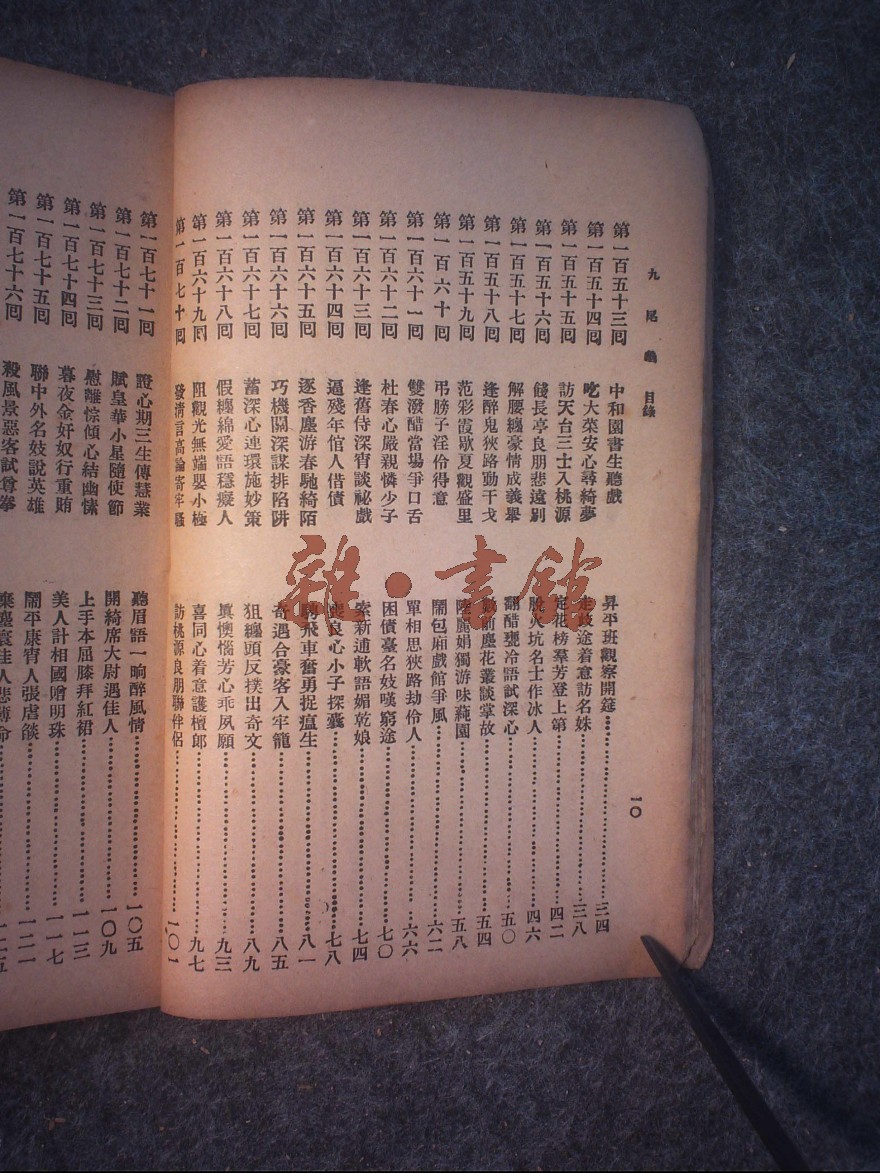 九尾龜 目錄
一〇
第一百五十三回 中和園書生聽戲 昇平班觀察開筵 三四
第一百五十四回 吃大菜安心尋綺夢 走歧途着意訪名姝 三八
第一百五十五回 訪天台三士入桃源 定花榜羣芳登上第 四二
第一百五十六回 餞長亭良朋悲遠別 脫火坑名士作冰人 四六
第一百五十七回 解腰纏豪情成義舉 翻醋甕冷語試深心 五〇
第一百五十八回 逢醉鬼狹路動干戈 前塵花叢談掌故 五四
第一百五十九回 范彩霞歇夏觀盛里 陸麗娟獨游味蒓園 五八
第一百六十回 弔膀子淫伶得意 鬧包廂戲館爭風 六二
第一百六十一回 雙潑醋當場爭口舌 單相思狹路劫伶人 六六
第一百六十二回 杜春心嚴親憐少子 困債臺名妓嘆窮途 七〇
第一百六十三回 逢舊侍深宵談祕戲 索新逋軟語媚乾娘 七四
第一百六十四回 逼殘年倌人借債 喪良心小子探囊 七八
第一百六十五回 逐香塵游春馳綺陌 飛車奮勇捉瘟生 八一
第一百六十六回 巧機關深謀排陷阱 奇遇合豪客入牢籠 八五
第一百六十七回 蓄深心連環施妙策 狃纏頭反撲出奇文 八九
第一百六十八回 假纏綿愛語穩癡人 眞懊惱芳心乖夙願 九三
第一百六十九回 阻觀光無端嬰小極 喜同心着意護檀郎 九七
第一百七十回 發清言高論寄牢騷 訪桃源良朋聯伴侶 一〇一
第一百七十一回 證心期三生傳慧業 聽眉語一晌醉風情 一〇五
第一百七十二回 賦皇華小星隨使節 開綺席大尉遇佳人 一〇九
第一百七十三回 慰離悰傾心結幽愫 上手本屈膝拜紅裙 一一三
第一百七十四回 暮夜金奸奴行重賄 美人計相國贈明珠 一一七
第一百七十五回 聯中外名妓說英雄 鬧平康宵人張虐燄 一二一
第一百七十六回 殺風景惡客試尊拳 棄塵寰佳人悲薄命 一二五
雜·書館